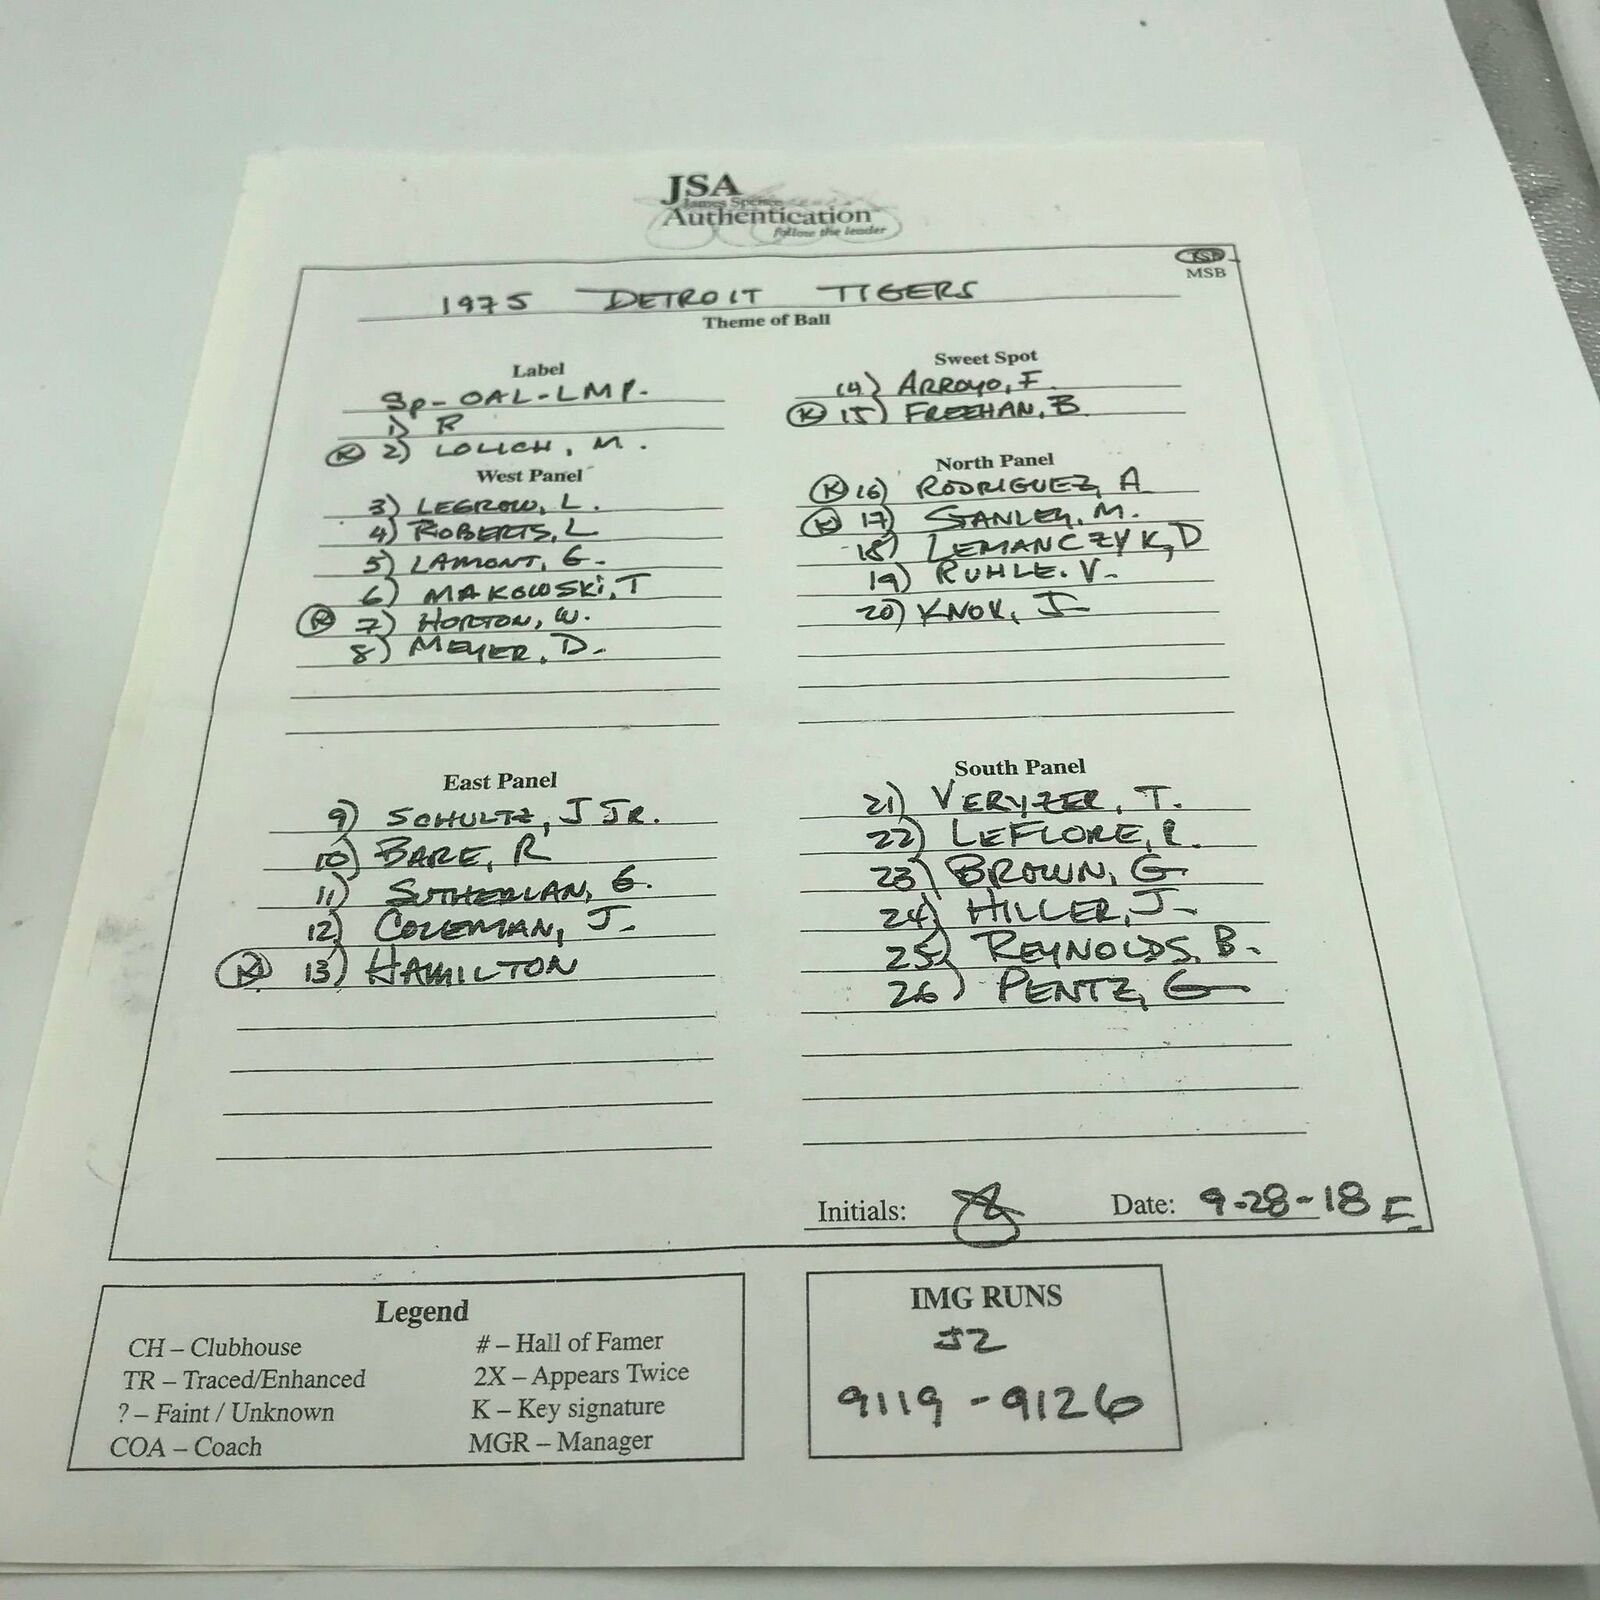 JSA
James Spence
Authentication
follow the leader
MSB
1975 DETROIT TIGERS
Theme of Ball
Label
Sp-OAL-LMP.
1) R
K 2) LOLICH, M.
West Panel
3) LEGROW, L.
4) ROBERTS, L
5) LAMONT, G.
6) MAKOWSKi, T
K 7) HORTON, W.
8) MEYER, D.
East Panel
9) SCHULTZ, J JR.
10) BARE, R
11) SUTHERLAN, G.
12) COLEMAN, J.
K 13) HAMILTON
Sweet Spot
14) ARROYO, F.
K 15) FREEHAN, B
North Panel
K 16) RODRIGUEZ, A
K 17) STANLEY, M.
18) LEMANCZYK, D
19) RUHLE, V-
20) KNOX, J-
South Panel
21) VERYZER, T.
22) LEFLORE, R.
23) BROWN, G
24) HILLER, J-
25) REYNOLDS, B.
26) PENTZ, G
Initials:
Date: 9-28-18 F
Legend
CH – Clubhouse
TR – Traced/Enhanced
? – Faint / Unknown
COA – Coach
# – Hall of Famer
2X – Appears Twice
K – Key signature
MGR – Manager
IMG RUNS
J2
9119 - 9126